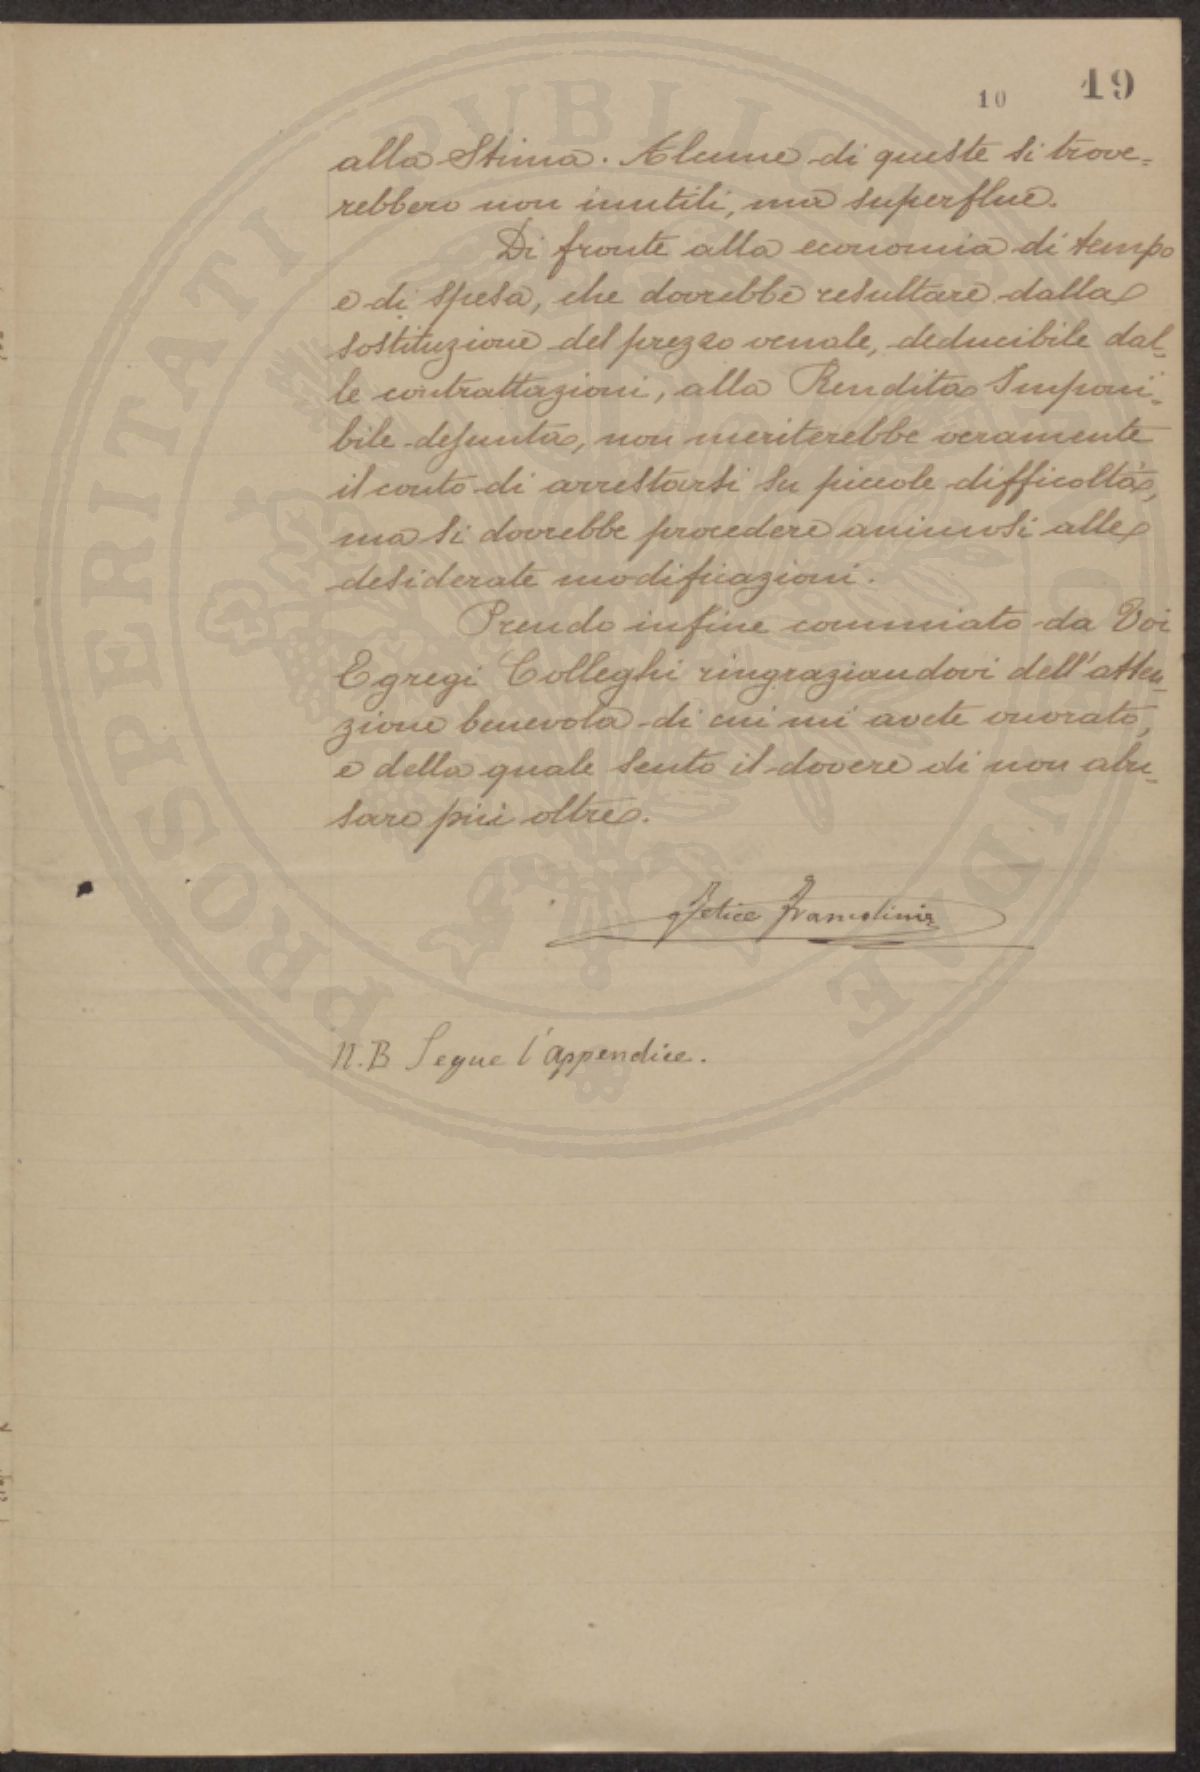 10 19
alla Stima. Alcune di queste si trove=
rebbero non inutili, ma superflue.
Di fronte alla economia di tempo
e di spesa, che dovrebbe resultare dalla
sostituzione del prezzo venale, deducibile dal=
le contrattazioni, alla Rendita Imponi=
bile desunta, non meriterebbe veramente
il conto di arrestarsi su piccole difficoltà,
ma si dovrebbe procedere animosi alle
desiderate modificazioni.
Prendo infine commiato da Voi
Egregi Colleghi ringraziandovi dell'atten=
zione benevola di cui mi avete onorato,
e della quale sento il dovere di non abu=
sare più oltre.
Felice Francolini
N.B Segue l'appendice.
PROSPERITATI PVBLICAE